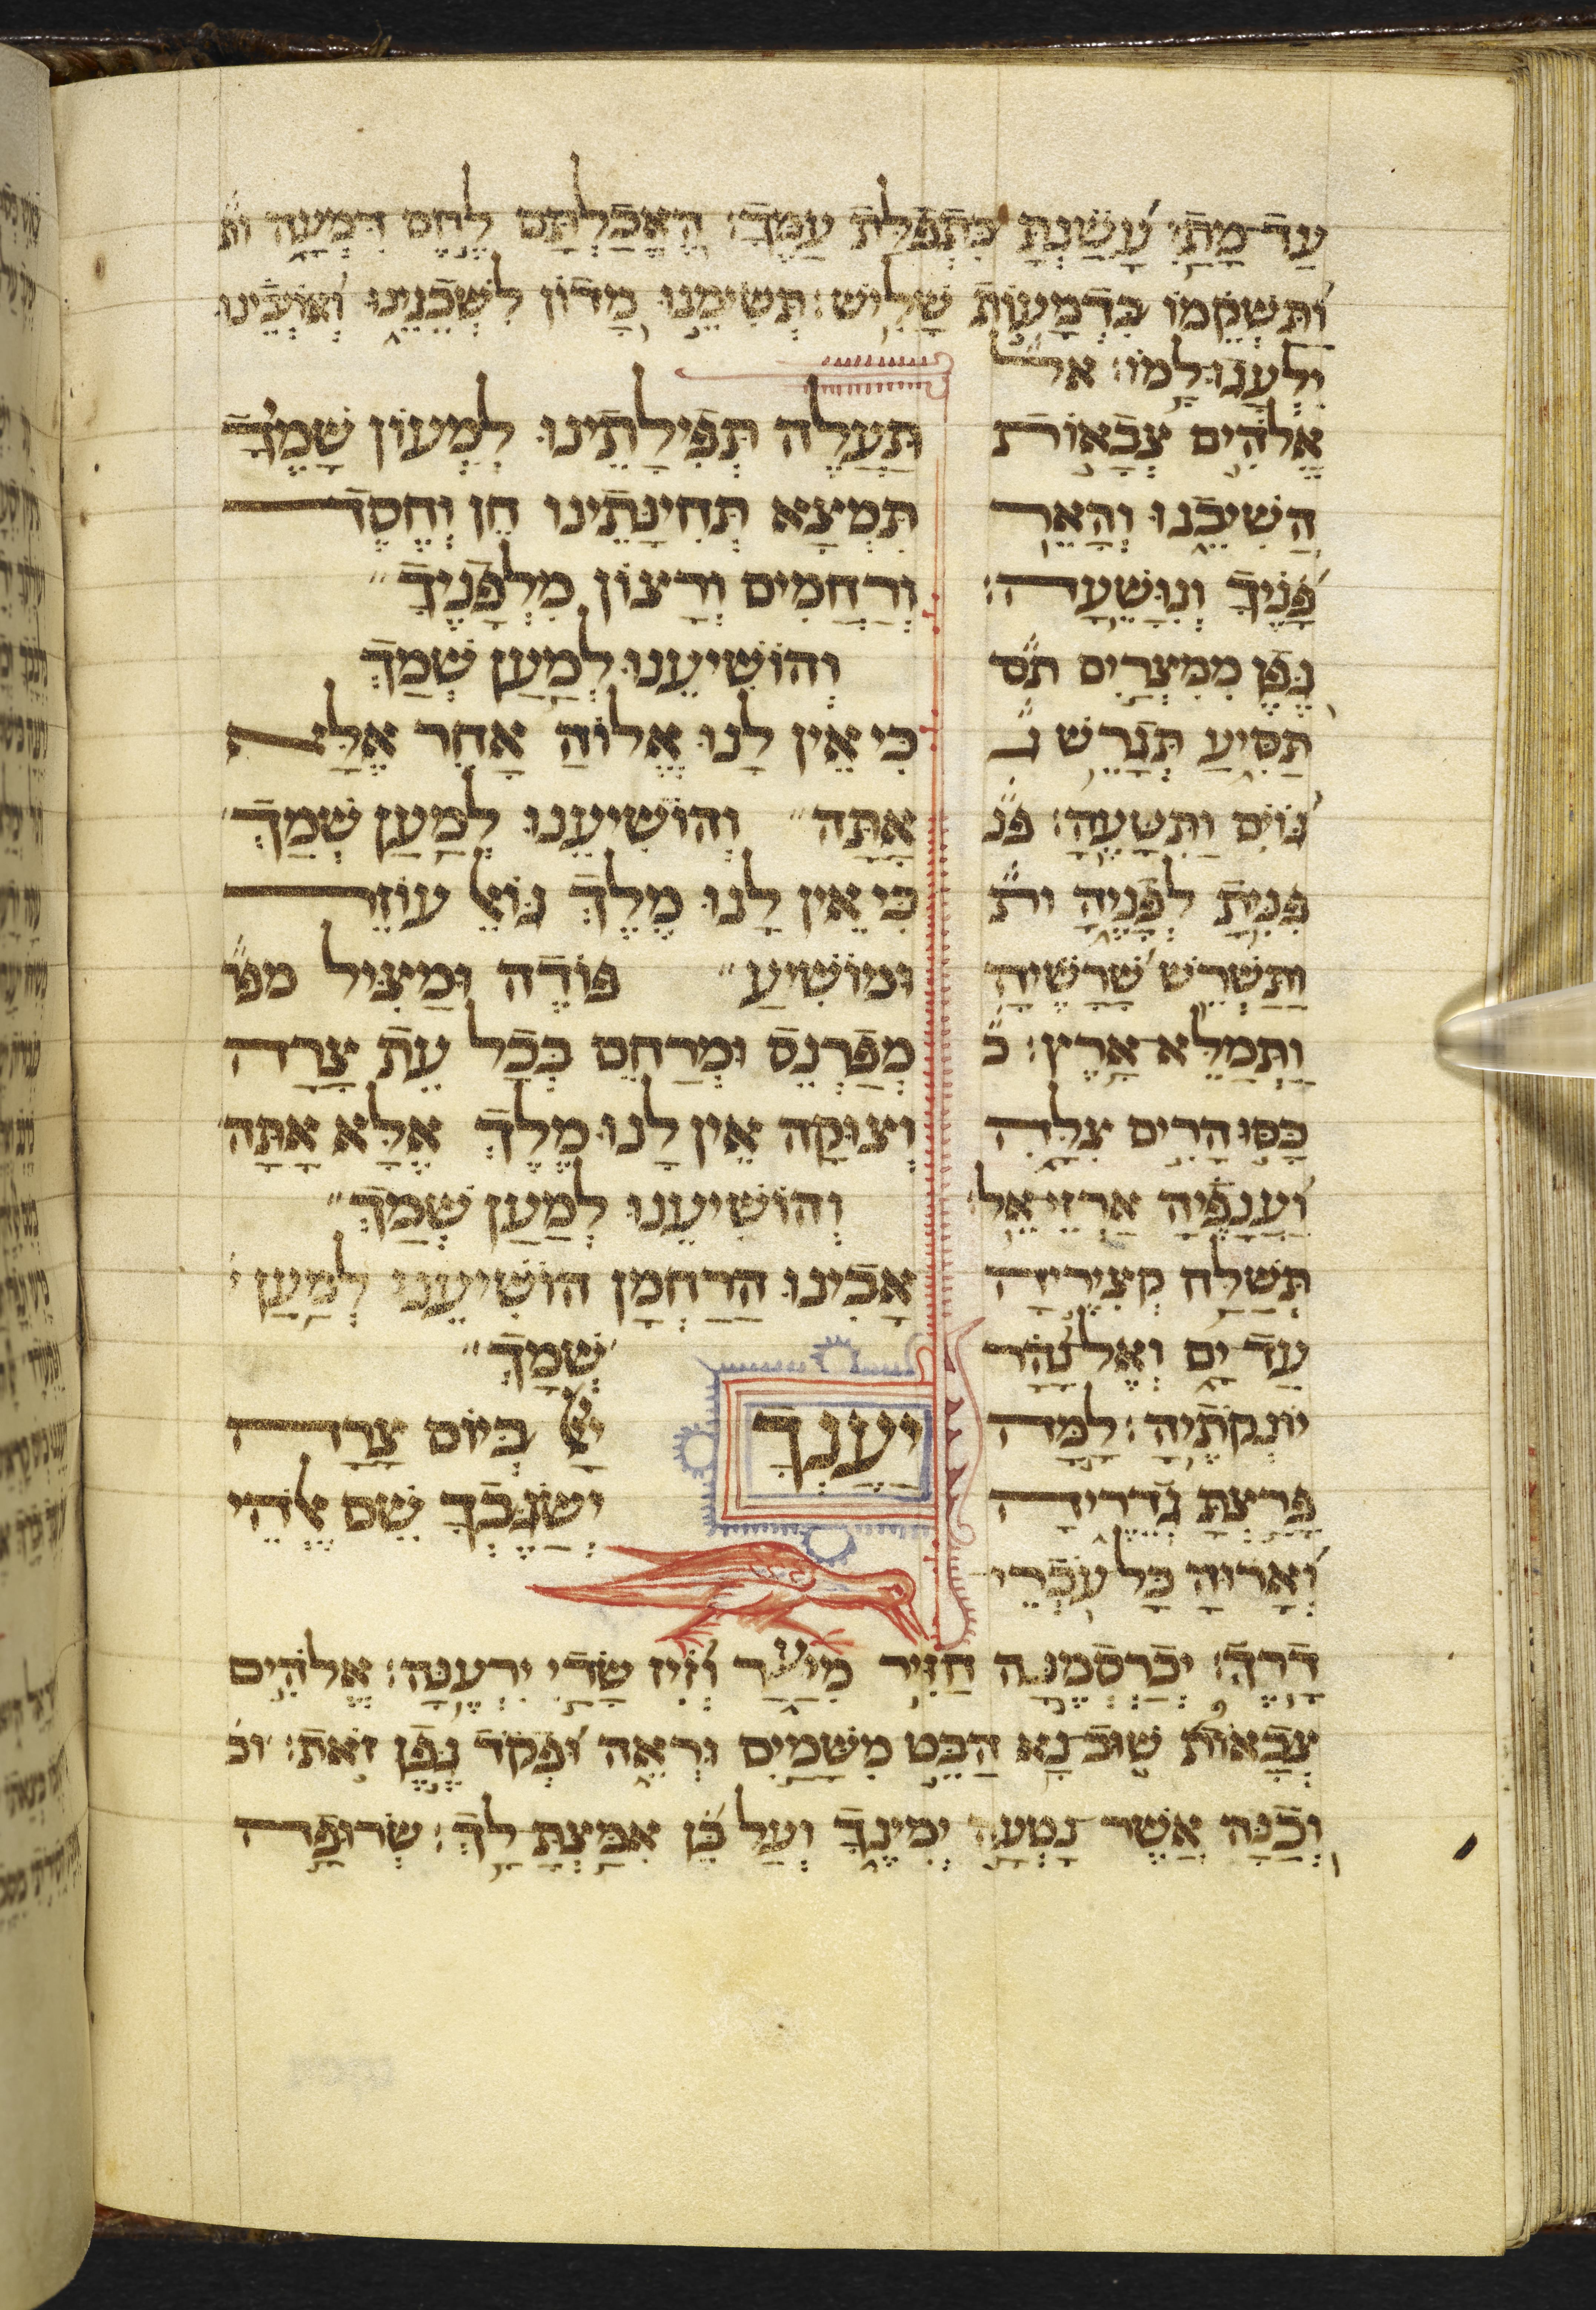 עַד מָתַי עָשַׁנְתָּ בִּתְפִלַּת עַמֶּךָ: הֶאֱכַלְתָּם לֶחֶם דִּמְעָה ות
וַתַּשְׁקֵמוֹ בִּדְמָעוֹת שָׁלִישׁ: תְּשִׂימֵנוּ מָדוֹן לִשְׁכֵנֵינוּ וְאוֹיְבֵינוּ
יִלְעֲגוּ לָמוֹ: אל
אֱלֹהִים צְבָאוֹת
הֲשִׁיבֵנוּ וְהָאֵר
פָּנֶיךָ וְנִוָּשֵׁעָה:
גֶּפֶן מִמִּצְרַיִם תס
תַּסִּיעַ תְּגָרֵשׁ ג
גּוֹיִם וַתִּטָּעֶהָ: פנ
פִּנִּיתָ לְפָנֶיהָ ות
וַתַּשְׁרֵשׁ שָׁרָשֶׁיהָ
וַתְּמַלֵּא אָרֶץ: כ
כָּסּוּ הָרִים צִלָּהּ
וַעֲנָפֶיהָ אַרְזֵי אֵל:
תְּשַׁלַּח קְצִירֶיהָ
עַד יָם וְאֶל נָהָר
יוֹנְקֹתֶיהָ: לָמָּה
פָּרַצְתָּ גְדֵרֶיהָ
וְאָרוּהָ כָּל עֹבְרֵי
תַּעֲלֶה תְּפִילָתֵינוּ לִמְעוֹן שָׁמֶיךָ
תִּמְצָא תְּחִינָתֵינוּ חֵן וְחֶסֶד
וְרַחֲמִים וְרָצוֹן מִלְּפָנֶיךָ
וְהוֹשִׁיעֵנוּ לְמַעַן שְׁמֶךָ
כִּי אֵין לָנוּ אֱלוֹהַּ אַחֵר אֶלָּא
אַתָּה וְהוֹשִׁיעֵנוּ לְמַעַן שְׁמֶךָ
כִּי אֵין לָנוּ מֶלֶךְ גּוֹאֵל עוֹזֵר
וּמוֹשִׁיעַ פּוֹדֶה וּמַצִּיל מפר
מְפַרְנֵס וּמְרַחֵם בְּכָל עֵת צָרָה
וְצוּקָה אֵין לָנוּ מֶלֶךְ אֶלָּא אַתָּה
וְהוֹשִׁיעֵנוּ לְמַעַן שְׁמֶךָ
אָבִינוּ הָרַחְמָן הוֹשִׁיעֵנוּ לְמַעַן
שְׁמֶךָ
יַעַנְךָ יְיָ בְּיוֹם צָרָה
יְשַׂגֶּבְךָ שֵׁם אֱלֹהֵי
דָרֶךְ: יְכַרְסְמֶנָּה חֲזִיר מִיַּעַר וְזִיז שָׂדַי יִרְעֶנָּה: אֱלֹהִים
צְבָאוֹת שׁוּב נָא הַבֵּט מִשָּׁמַיִם וּרְאֵה וּפְקֹד גֶּפֶן זֹאת: וכ
וְכַנָּה אֲשֶׁר נָטְעָה יְמִינֶךָ וְעַל בֵּן אִמַּצְתָּ לָךְ: שְׂרוּפָה